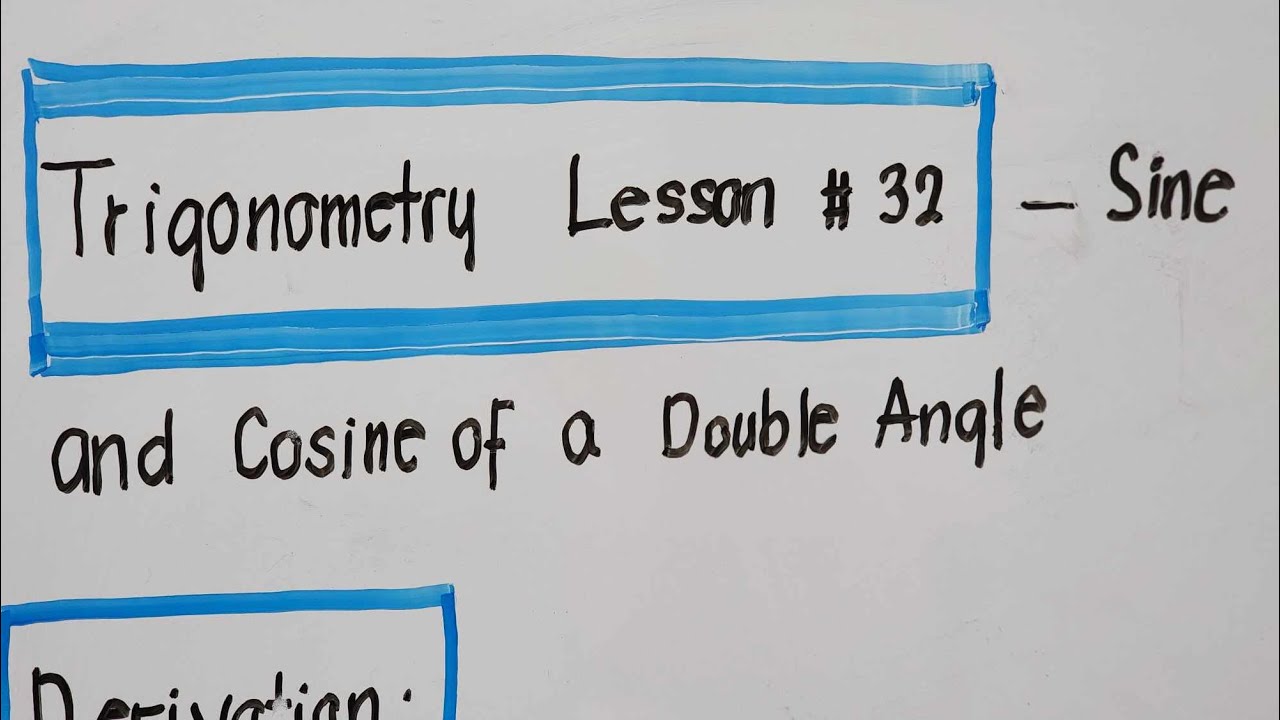 Trigonometry Lesson # 32 – Sine
and Cosine of a Double Angle
Derivation: